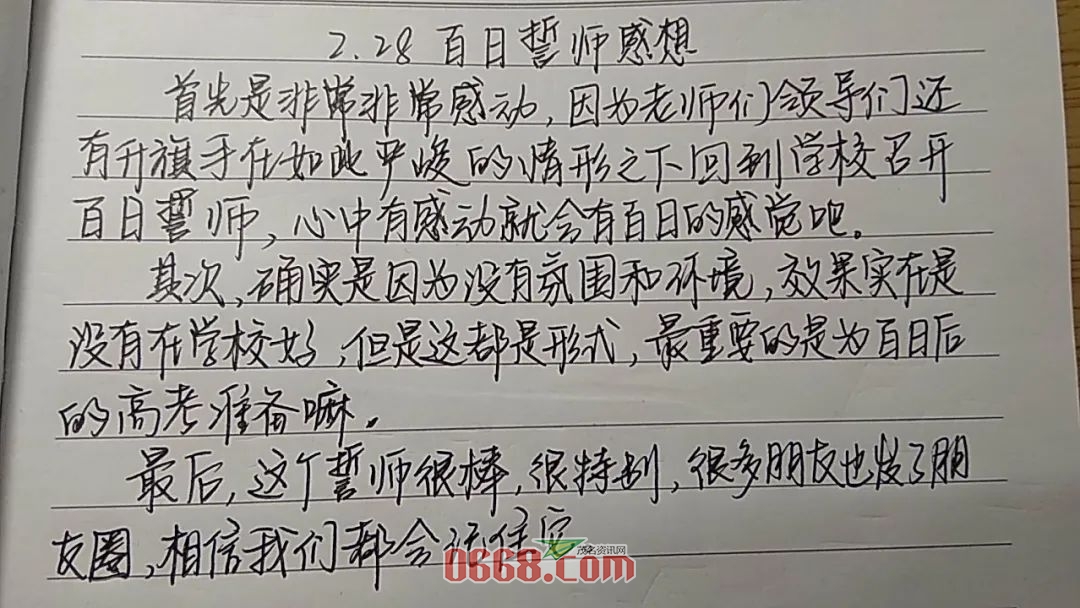 2.28 百日誓师感想
首先是非常非常感动,因为老师们领导们还
有升旗手在如此严峻的情形之下回到学校召开
百日誓师,心中有感动就会有百日的感觉吧。
其次,确实是因为没有氛围和环境,效果实在是
没有在学校好,但是这都是形式,最重要的是为百日后
的高考准备嘛。
最后,这个誓师很棒,很特别,很多朋友也发了朋
友圈,相信我们都会记住它
茂名资讯网
0668.com